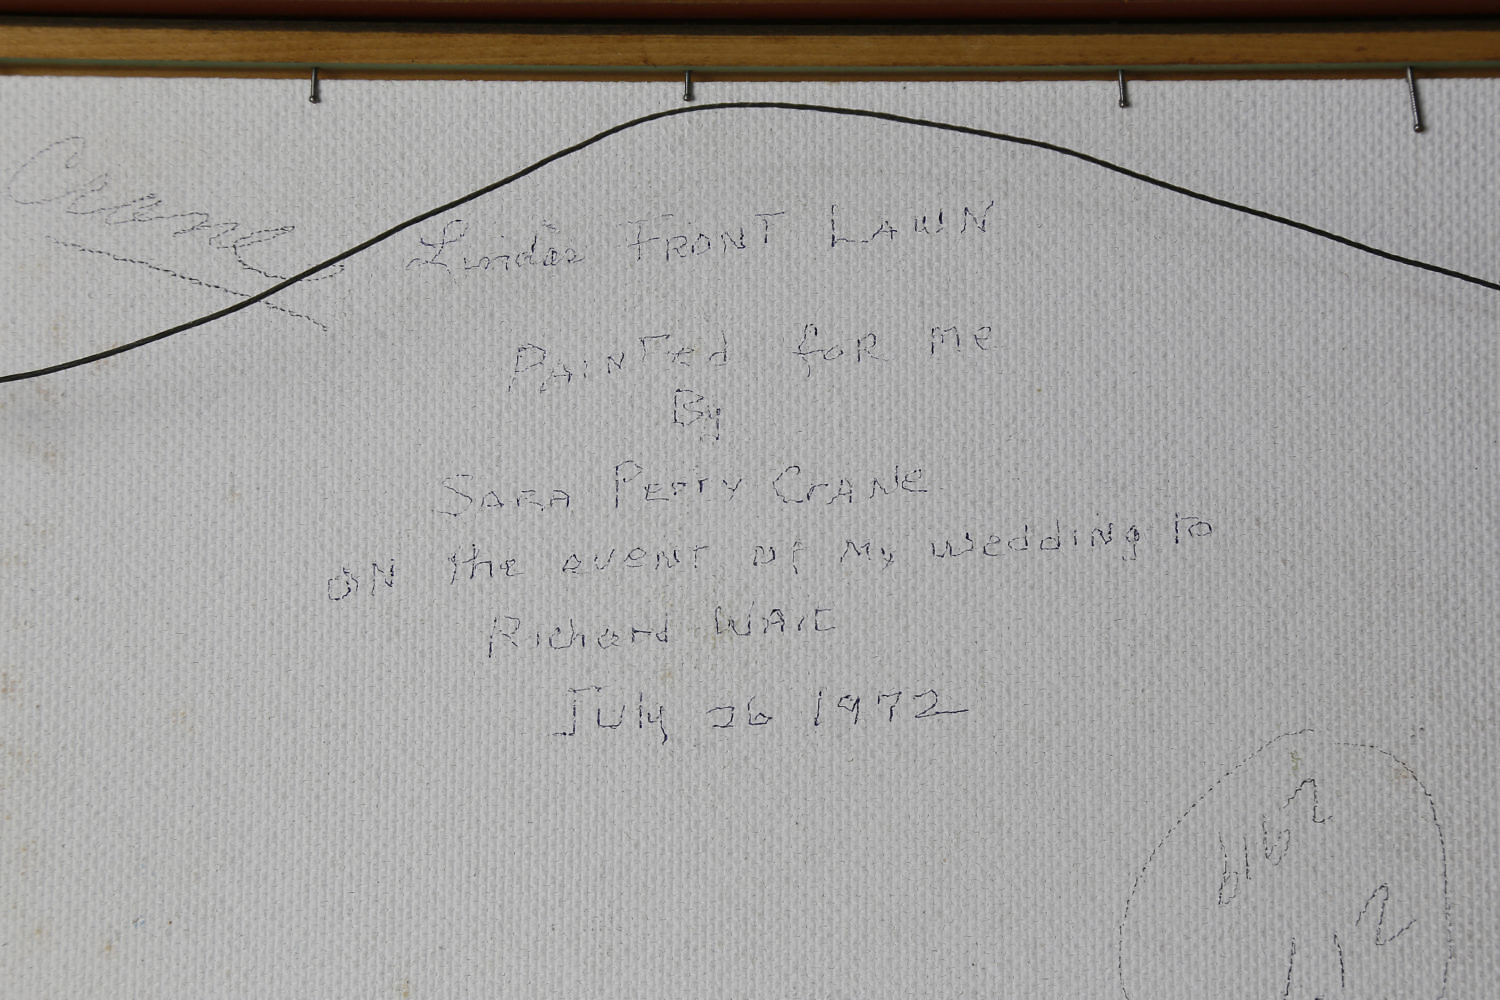 Crane
Linda's FRONT LAWN
PAINTed foR me
By
SARA Petty CRANe
ON the event of My wedding to
Richard WAIT
July 26 1972